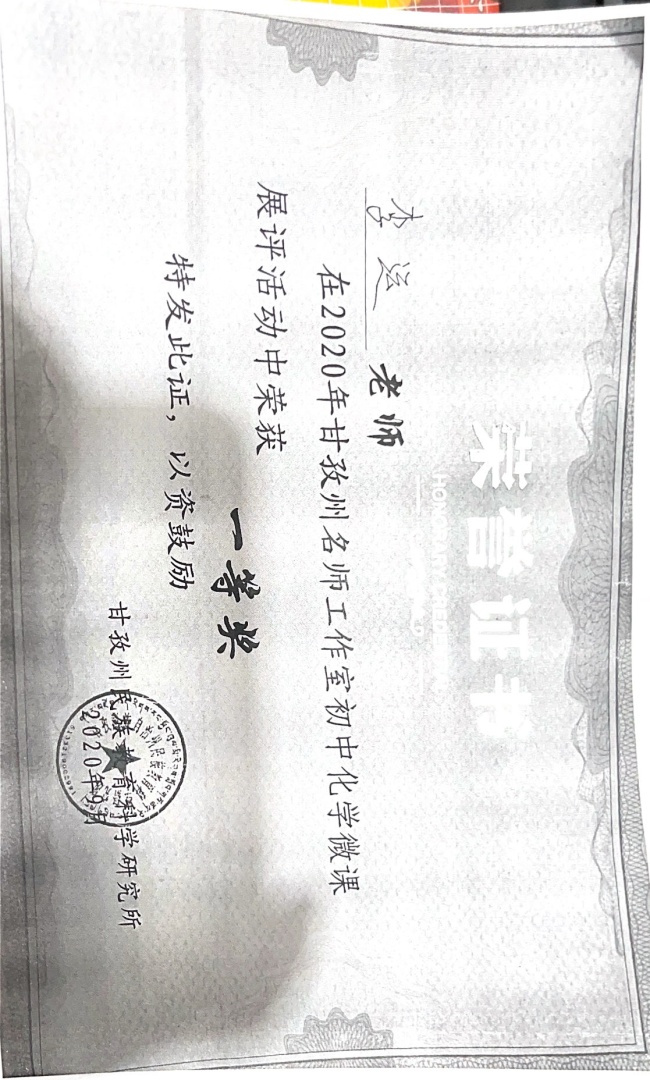 荣誉证书
李运 老师
在2020年甘孜州名师工作室初中化学微课
展评活动中荣获
一等奖
特发此证，以资鼓励
甘孜州民族教育科学研究所
2020年9月